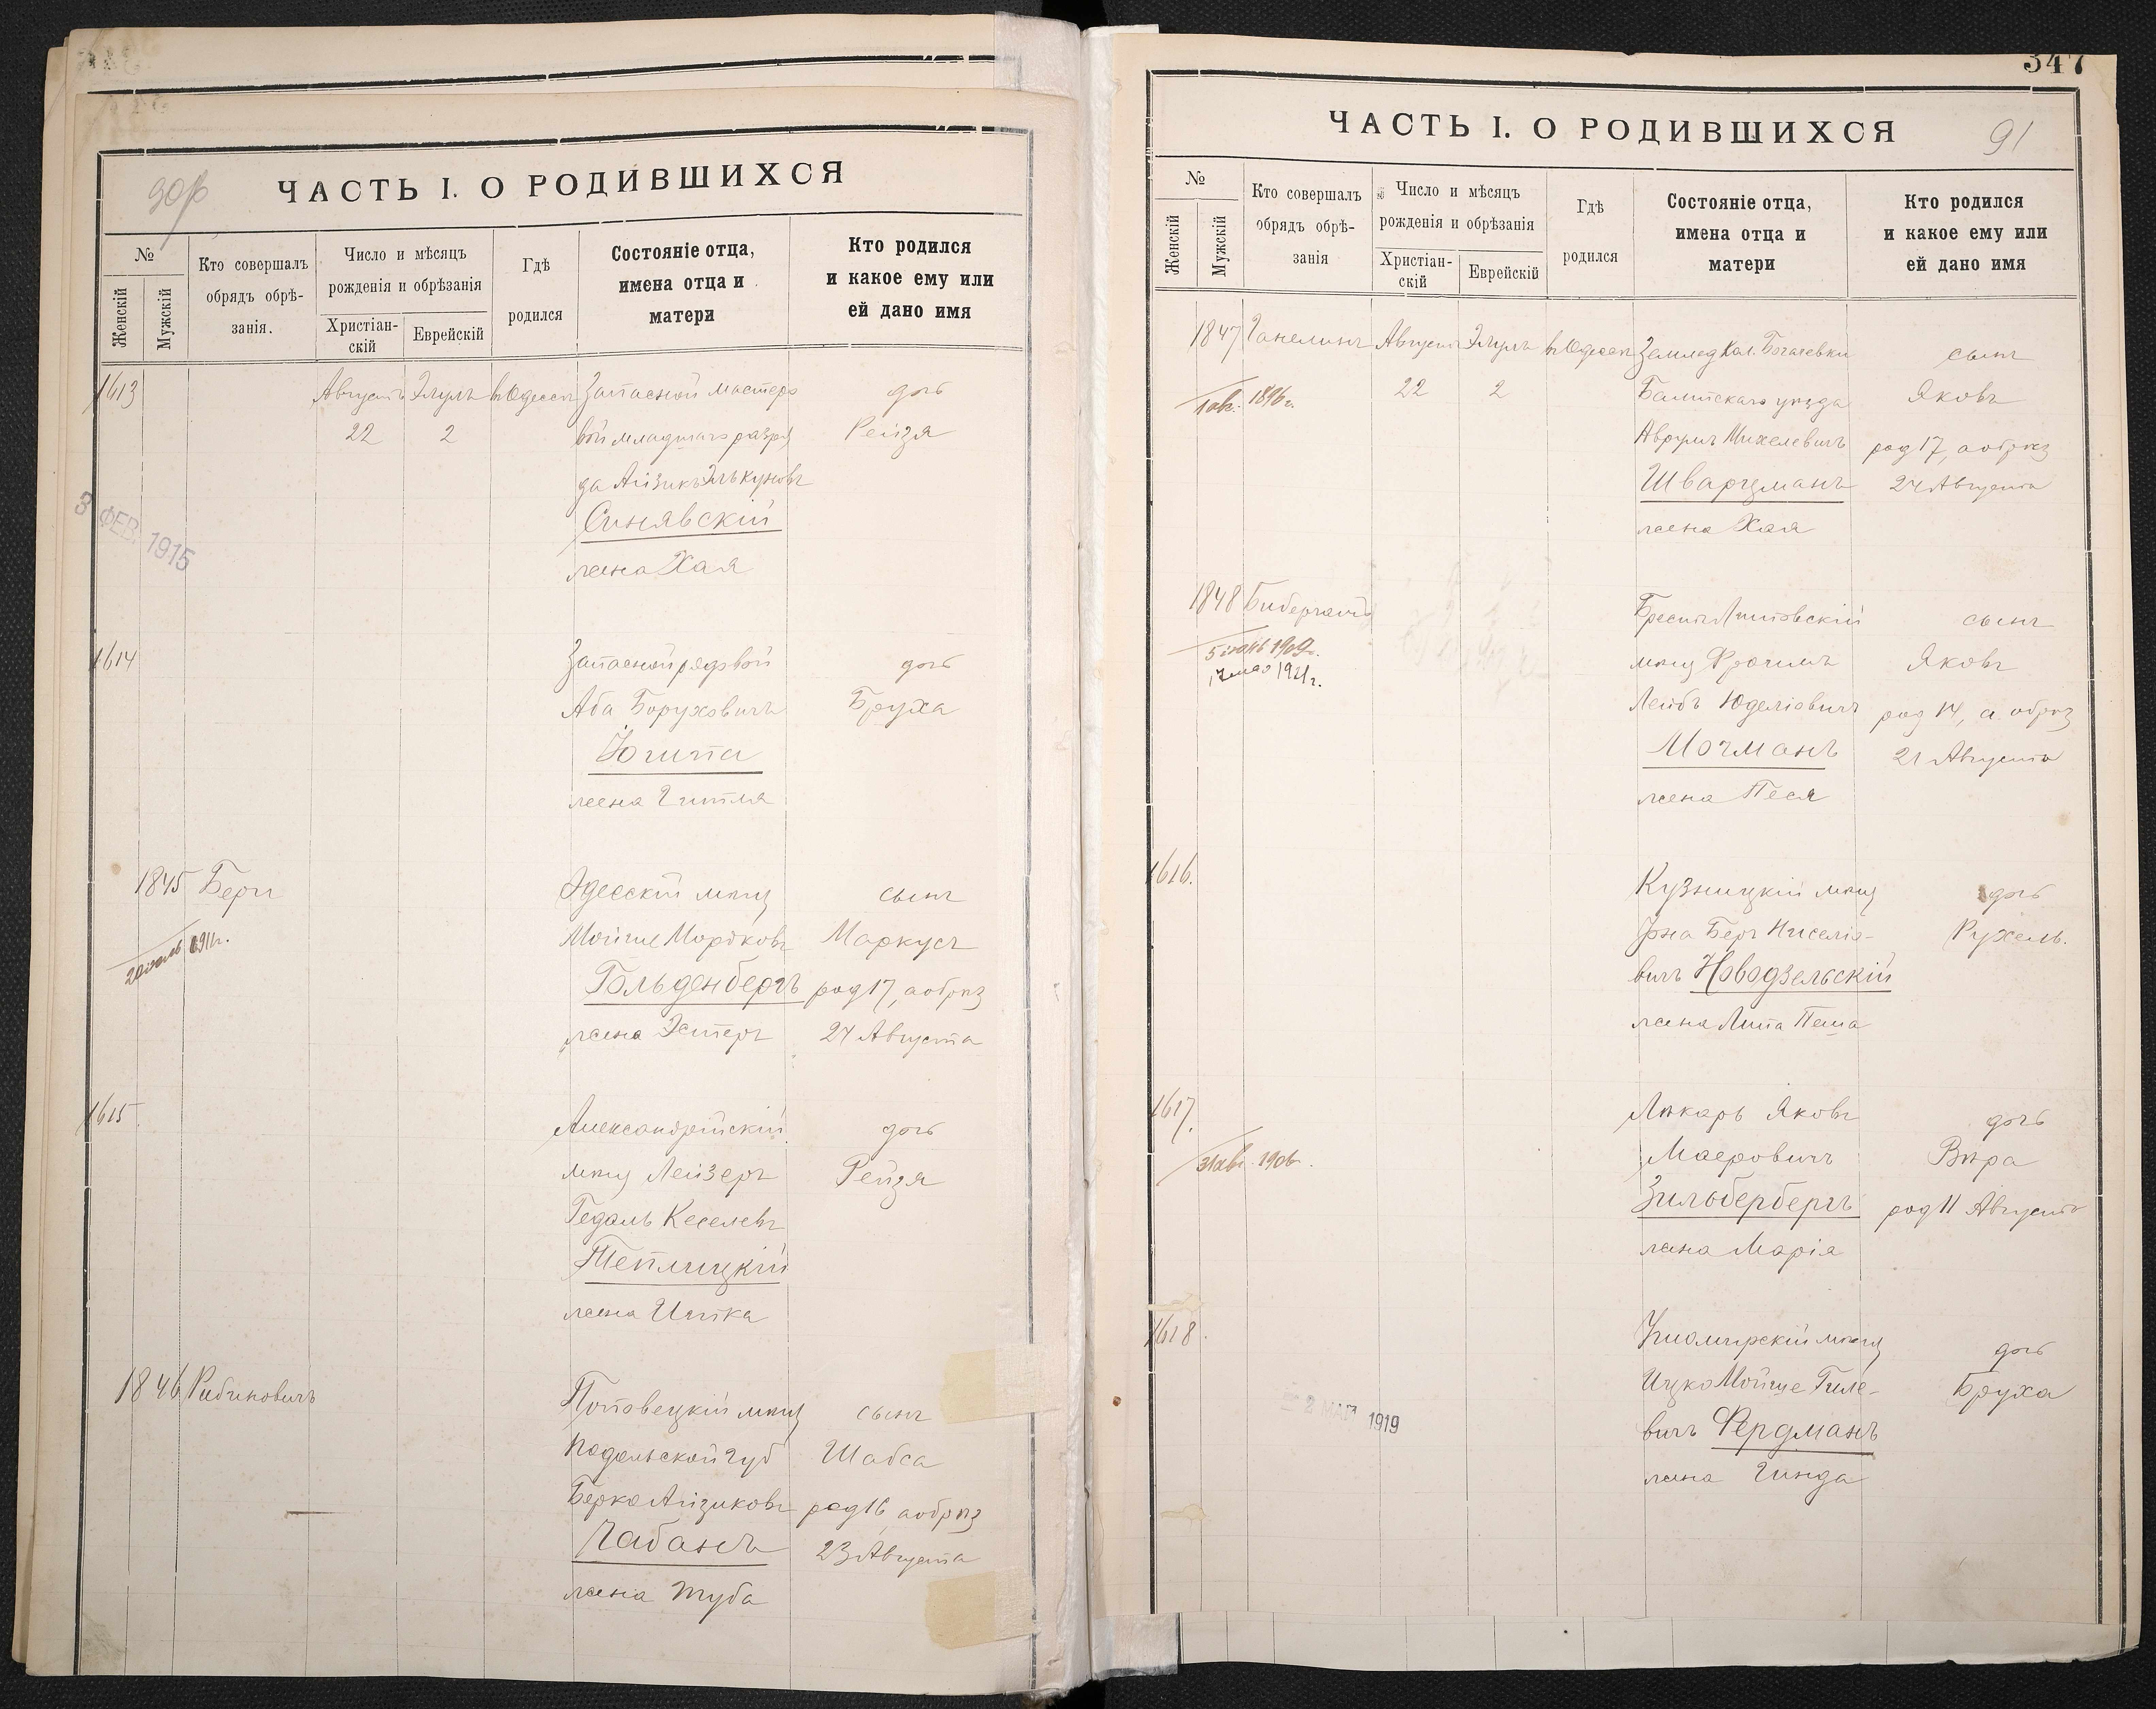 90
ЧАСТЬ I. О РОДИВШИХСЯ
№
Женскій
Мужскій
Кто совершалъ
обрядъ обрѣ-
занія.
Число и мѣсяцъ
рожденія и обрѣзанія
Христіан-
скій
Еврейскій
Гдѣ
родился
Состояніе отца,
имена отца и
матери
Кто родился
и какое ему или
ей дано имя
1613
Августъ
22
Элулъ
2
въ Одессѣ
Запасной мастеро
вой младшаго разря
да Айзикъ Элькуновъ
Синявскій
жена Хая
дочь
Рейзя
3 ФЕВ 1915
1614
Запасной рядовой
Аба Боруховичъ
жена Гитля
дочь
Бруха
1845
Бергъ
Одесскій мѣщ
Мойше Мордковъ
Гольденбергъ
жена Эстеръ
сынъ
Маркусъ
род 17, а обрѣз
24 Августа
1615
Александрійскій
мѣщ Лейзеръ
Гедаль Кеселевъ
Теплицкій
жена Итка
дочь
Рейзя
1846
Рабиновичъ
мѣщ
Подольской губ
Берко Айзиковъ
Чабанъ
жена Туба
сынъ
Шабса
род 16, а обрѣз
23 Августа
347
91
ЧАСТЬ I. О РОДИВШИХСЯ
№
Женскій
Мужскій
Кто совершалъ
обрядъ обрѣ-
занія
Число и мѣсяцъ
рожденія и обрѣзанія
Христіан-
скій
Еврейскій
Гдѣ
родился
Состояніе отца,
имена отца и
матери
Кто родился
и какое ему или
ей дано имя
1847
1896 г.
Ганелинъ
Августъ
22
Элулъ
2
въ Одессѣ
Землед Кол. Богачевки
Балтскаго уѣзда
Аврумъ Михелевичъ
Шварцманъ
жена Хая
сынъ
Яковъ
род 17, а обрѣз
24 Августа
1848
1909 г.
17 мая 1921 г.
Брестъ Литовскій
мѣщ Фроимъ
Лейбъ Юделіовичъ
Мочманъ
жена Песя
сынъ
Яковъ
род 14, а обрѣз
21 Августа
1616.
Кузницкій мѣщ
Іона Беръ Ниселіо-
вичъ Новодзельскій
жена Липа Пеша
дочь
Рухель.
1617.
31 авг. 1906 г.
Лѣкарь Яковъ
Маеровичъ
Зильбербергъ
жена Марія
дочь
Вѣра
род 11 Августа
1618.
2 МАЯ 1919
мѣщ
Ицко Мойше Гиле-
вичъ Фердманъ
жена Гинда
дочь
Бруха